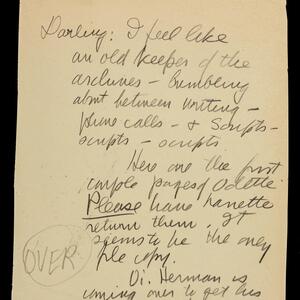 Darling: I feel like
an old keeper of the
archives – bumbling
about between writing –
phone calls – & Scripts –
scripts – scripts
Here are the first
couple pages of Odette
Please have Nanette
return them. It
seems to be the only
file copy.
OVER
Dr. Herman is
coming over to get his